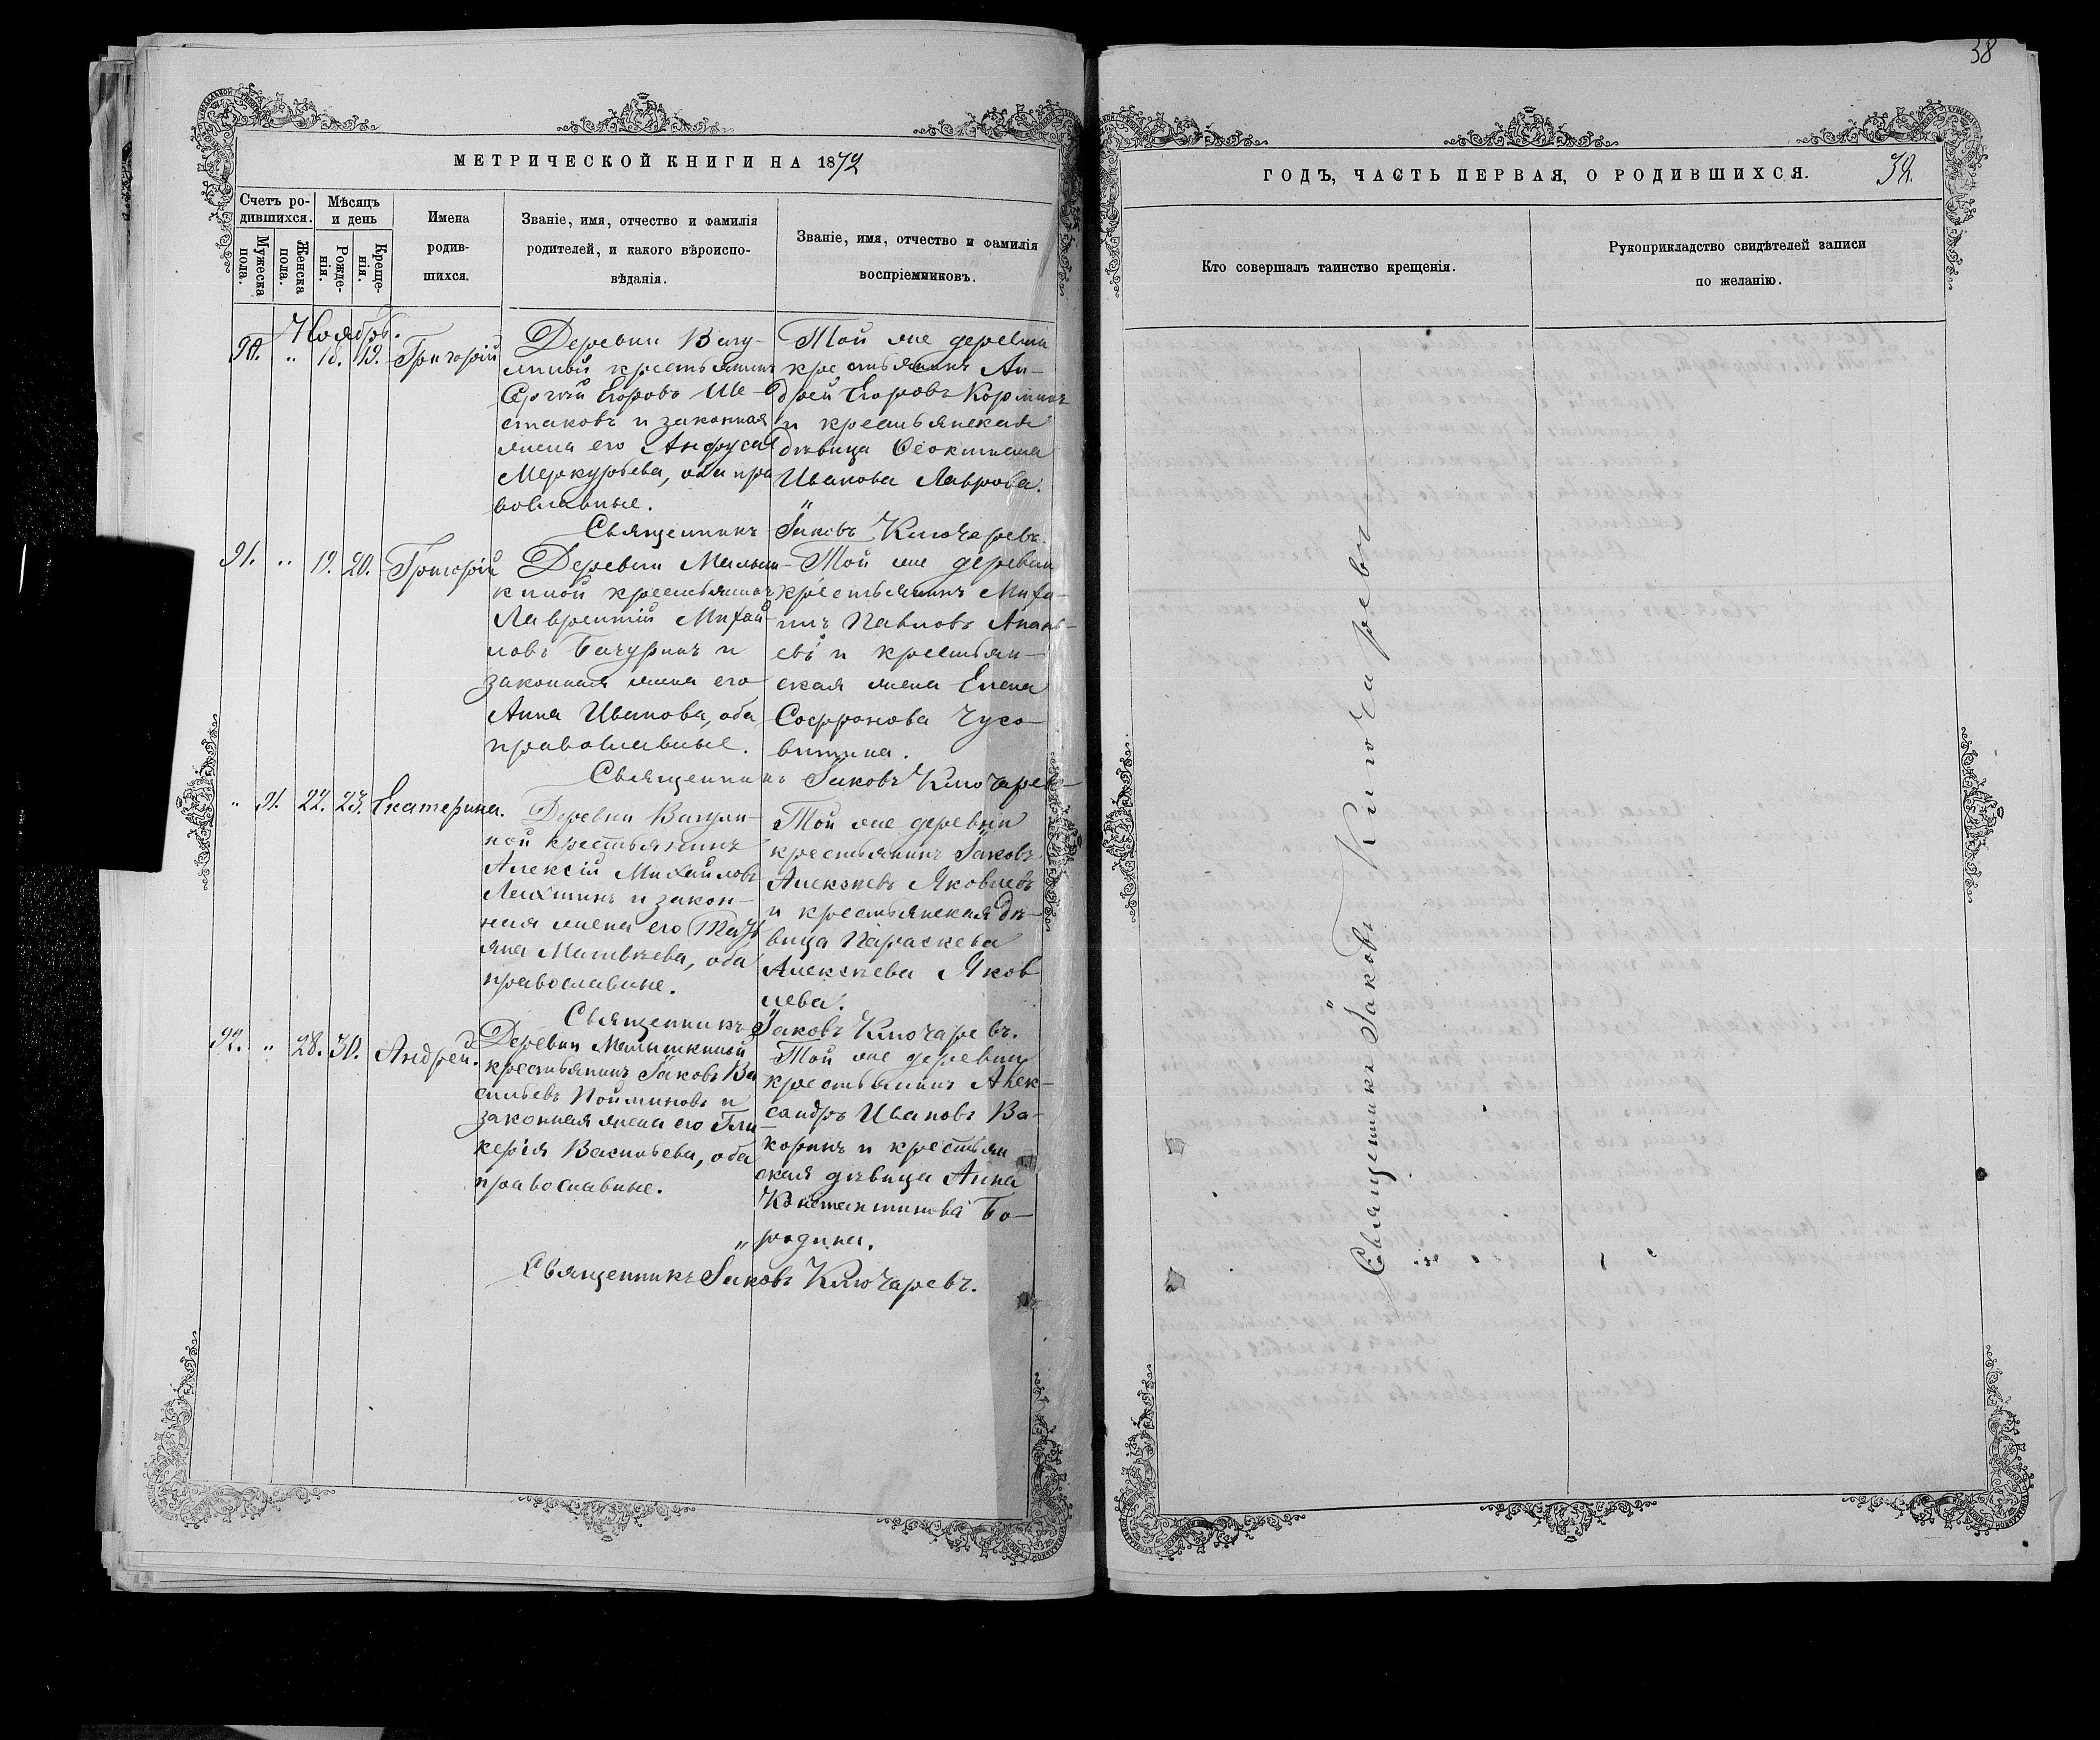 38
МЕТРИЧЕСКОЙ КНИГИ НА 1872
Счетъ ро-
дившихся.
Мужеска
пола.
Женска
пола.
Мѣсяцъ
и день
Рожде-
нія.
Креще-
нія.
Имена
родив-
шихся.
Званіе, имя, отчество и фамилія
родителей, и какого вѣроиспо-
вѣданія.
Званіе, имя, отчество и фамилія
воспріемниковъ.
Ноябрь.
90. " 18. 19. Григорій
Деревни Вагу-
линой крестьянинъ
Сергѣй Егоровъ Ше-
стаковъ и законная
жена его Анфуса
Меркурьева, оба пра
вославные.
Той же деревни
крестьянинъ Ан-
дрей Егоровъ
и крестьянская
дѣвица Ѳеоктиста
Иванова Лаврова.
Священникъ Іаковъ Ключаревъ.
91. " 19. 20. Григорій
Деревни Малыш-
киной крестьянинъ
Лаврентій Михай-
ловъ Бачуринъ и
законная жена его
Анна Иванова, оба
православные.
Той же деревни
крестьянинъ Миха-
илъ Павловъ Анань-
евъ и крестьян-
ская жена Елена
Софронова Чусо-
витина.
Священникъ Іаковъ Ключаревъ
" 91. 22. 23. Екатерина.
Деревни Вагули-
ной крестьянинъ
Алексій Михайловъ
Лихтинъ и закон-
ная жена его Тать
яна Матвѣева, оба
православные.
Той же деревни
крестьянинъ Іаковъ
Алексѣевъ Яковлевъ
и крестьянская дѣ-
вица Параскева
Алексѣева Яков
лева.
Священникъ Іаковъ Ключаревъ.
92. " 28. 30. Андрей.
Деревни Малышкиной
крестьянинъ Іаковъ Ва
сильевъ Пойлиновъ и
законная жена его Гли-
керія Васильева, оба
православные.
Той же деревни
крестьянинъ Алек-
сандръ Ивановъ Ва-
коринъ и крестьян
ская дѣвица Анна
Константинова Бо-
родина.
Священникъ Іаковъ Ключаревъ.
ГОДЪ, ЧАСТЬ ПЕРВАЯ, О РОДИВШИХСЯ. 38.
Кто совершалъ таинство крещенія.
Рукоприкладство свидѣтелей записи
по желанію.
Священникъ Іаковъ Ключаревъ